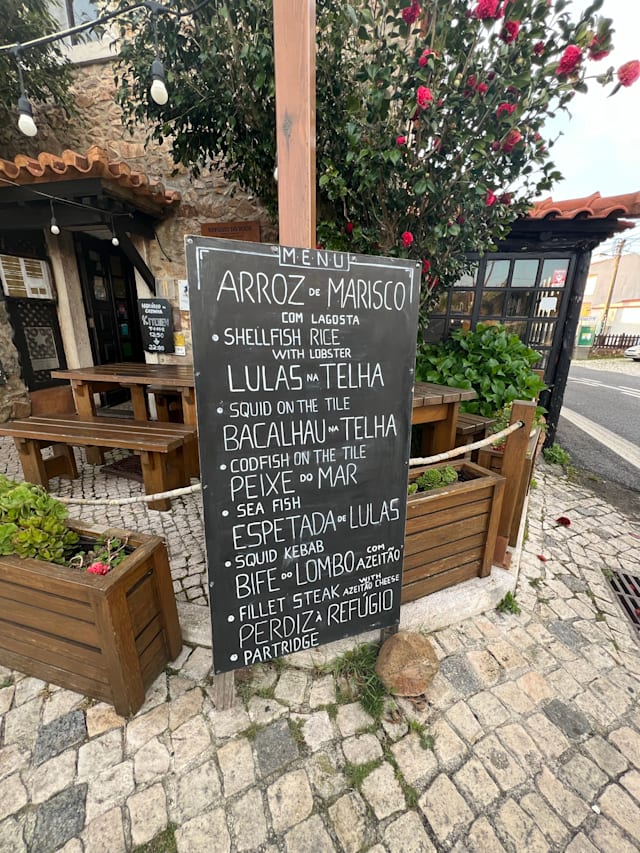 MENU
ARROZ DE MARISCO
COM LAGOSTA
• SHELLFISH RICE
WITH LOBSTER
LULAS NA TELHA
• SQUID ON THE TILE
BACALHAU NA TELHA
• CODFISH ON THE TILE
PEIXE DO MAR
• SEA FISH
ESPETADA DE LULAS
• SQUID KEBAB
BIFE DO LOMBO COM AZEITÃO
• FILLET STEAK WITH AZEITÃO CHEESE
PERDIZ À REFÚGIO
• PARTRIDGE
KITCHEN